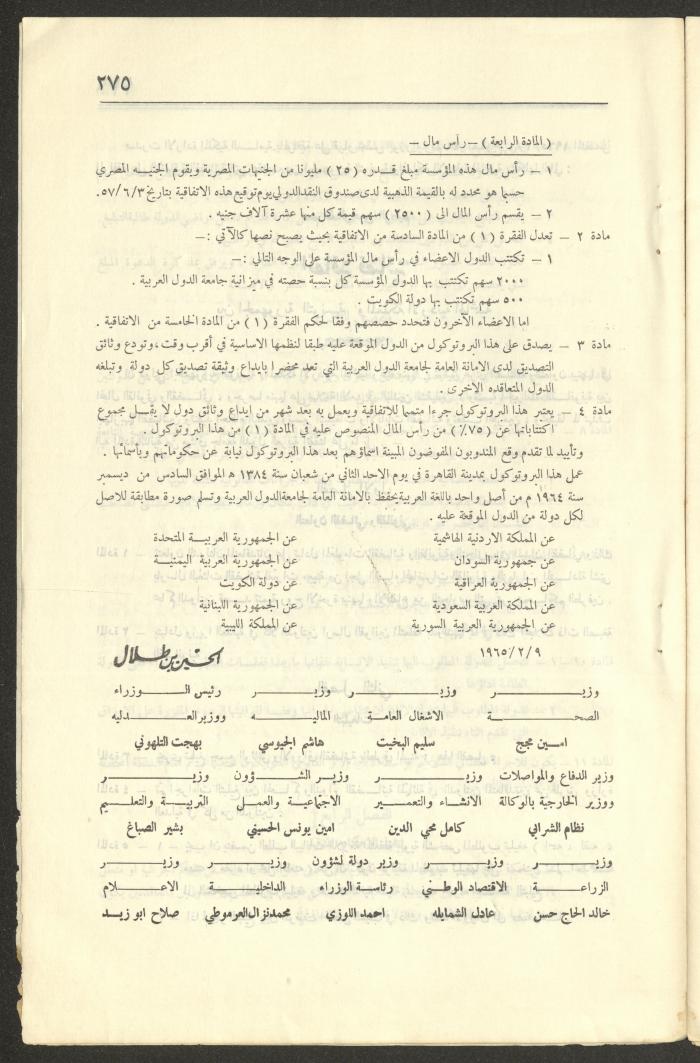 ٢٧٥
( المادة الرابعة ) — رأس مال —
١ — رأس مال هذه المؤسسة مبلغ قدره ( ٢٥ ) مليونا من الجنيهات المصرية ويقوم الجنيه المصري
حسبما هو محدد له بالقيمة الذهبية لدى صندوق النقد الدولي يوم توقيع هذه الاتفاقية بتاريخ ٥٧/٦/٣.
٢ — يقسم رأس المال الى ( ٢٥٠٠ ) سهم قيمة كل منها عشرة آلاف جنيه .
مادة ٢ — تعدل الفقرة ( ١ ) من المادة السادسة من الاتفاقية بحيث يصبح نصها كالآتي :—
١ — تكتتب الدول الاعضاء في رأس مال المؤسسة على الوجه التالي :—
٢٠٠٠ سهم تكتتب بها الدول المؤسسة كل بنسبة حصته في ميزانية جامعة الدول العربية .
٥٠٠ سهم تكتتب بها دولة الكويت .
اما الاعضاء الآخرون فتحدد حصصهم وفقا لحكم الفقرة ( ١ ) من المادة الخامسة من الاتفاقية .
مادة ٣ — يصدق على هذا البروتوكول من الدول الموقعة عليه طبقا لنظمها الاساسية في أقرب وقت، وتودع وثائق
التصديق لدى الامانة العامة لجامعة الدول العربية التي تعد محضرا بايداع وثيقة تصديق كل دولة وتبلغه
الدول المتعاقده الاخرى .
مادة ٤ — يعتبر هذا البروتوكول جزءا متمما للاتفاقية ويعمل به بعد شهر من ايداع وثائق دول لا يقل مجموع
اكتتاباتها عن ( ٧٥٪ ) من رأس المال المنصوص عليه في المادة ( ١ ) من هذا البروتوكول .
وتأييد لما تقدم وقع المندوبون المفوضون المبينة اسماؤهم بعد هذا البروتوكول نيابة عن حكوماتهم وبأسمائها .
عمل هذا البروتوكول بمدينة القاهرة في يوم الاحد الثاني من شعبان سنة ١٣٨٤ ه الموافق السادس من ديسمبر
سنة ١٩٦٤ م من أصل واحد باللغة العربية يحفظ بالامانة العامة لجامعة الدول العربية وتسلم صورة مطابقة للاصل
لكل دولة من الدول الموقعة عليه .
عن المملكة الاردنية الهاشمية عن الجمهورية العربية المتحدة
عن جمهورية السودان عن الجمهورية العربية اليمنية
عن الجمهورية العراقية عن دولة الكويت
عن المملكة العربية السعودية عن الجمهورية اللبنانية
عن الجمهورية العربية السورية عن المملكة الليبية
١٩٦٥/٢/٩ الحسين بن طلال
وزير وزير وزير رئيس الوزراء
الصحة الاشغال العامة المالية ووزير العدليه
امين مجج سليم البخيت هاشم الجيوسي بهجت التلهوني
وزير الدفاع والمواصلات وزير وزير الشؤون وزير
ووزير الخارجية بالوكالة الانشاء والتعمير الاجتماعية والعمل التربية والتعليم
نظام الشرابي كامل محي الدين امين يونس الحسيني بشير الصباغ
وزير وزير وزير دولة لشؤون وزير وزير
الزراعة الاقتصاد الوطني رئاسة الوزراء الداخلية الاعلام
خالد الحاج حسن عادل الشمايله احمد اللوزي محمد نزال العرموطي صلاح ابو زيد